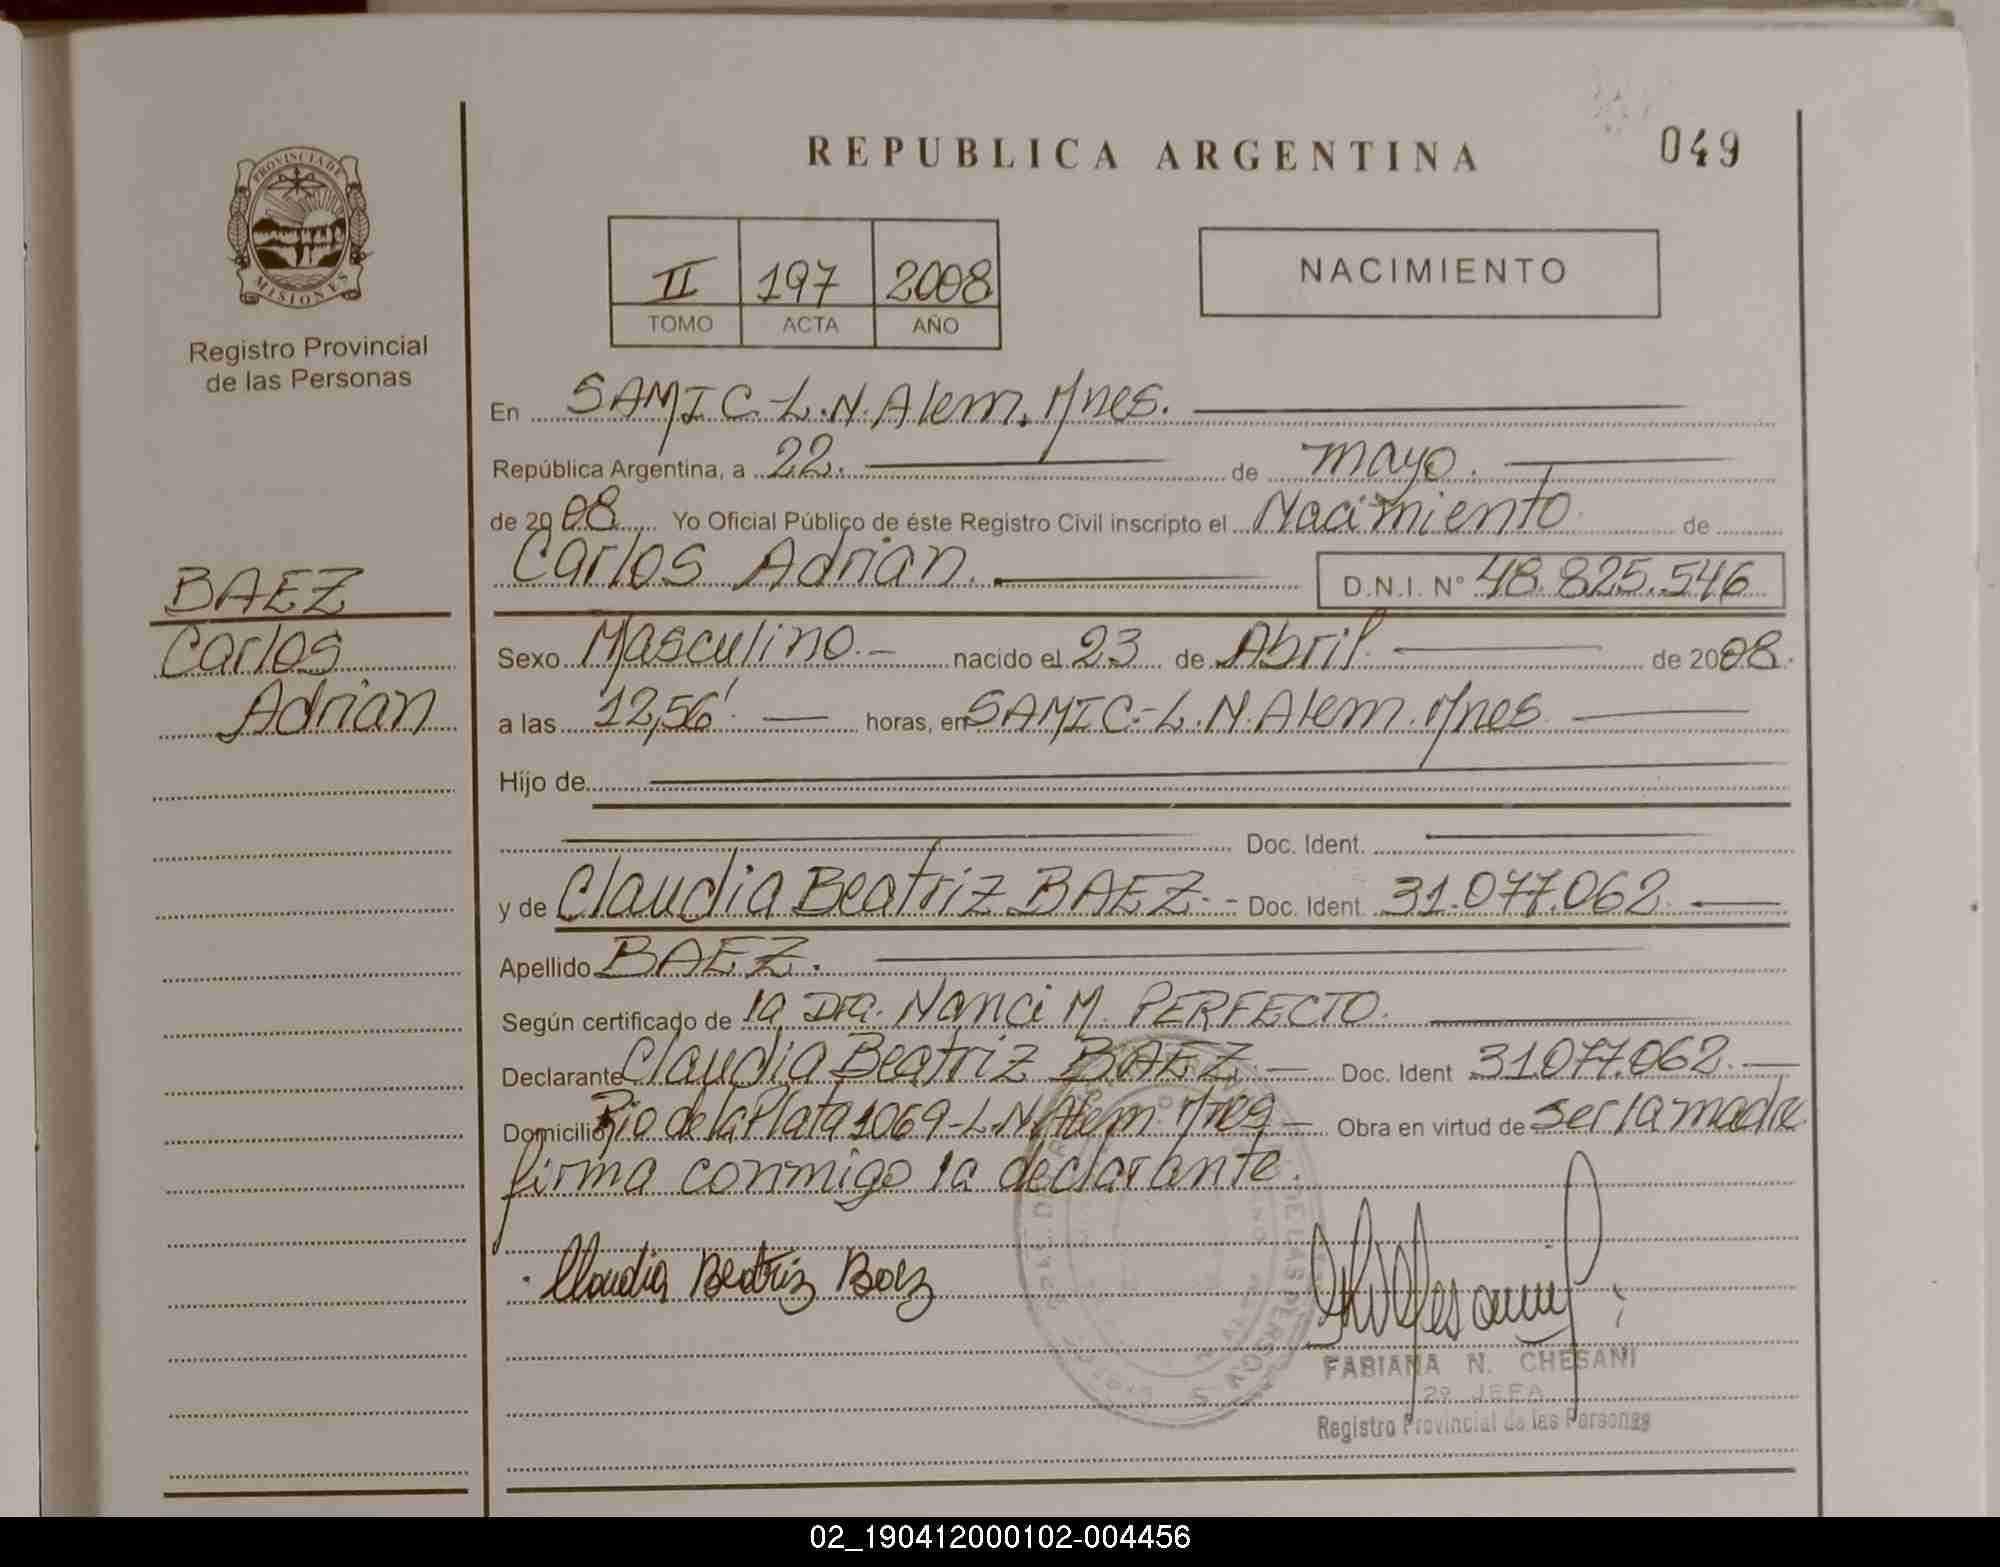 REPUBLICA ARGENTINA
049
PROVINCIA DE MISIONES
Registro Provincial
de las Personas
II 197 2008
TOMO ACTA AÑO
NACIMIENTO
En SAMIC.-L.N.Alem.Mnes.
República Argentina, a 22. de mayo.
de 2008 Yo Oficial Público de éste Registro Civil inscripto el Nacimiento de
Carlos Adrian. D.N.I. N° 48.825.546
BAEZ
Carlos
Adrian
Sexo Masculino.- nacido el 23 de Abril de 2008.
a las 12,56' horas, en SAMIC.-L.N.Alem.Mnes
Hijo de
Doc. Ident.
y de Claudia Beatriz BAEZ.- Doc. Ident. 31.077.062.
Apellido BAEZ.
Según certificado de la Dra. Nanci M. PERFECTO.
Declarante Claudia Beatriz BAEZ Doc. Ident 31.077.062.
Domicilio Rio de la Plata 1069-L.N.Alem.Mnes Obra en virtud de ser la madre
firma conmigo la declarante.
Claudia Beatriz Baez
FABIANA N. CHESANI
2º JEFA
Registro Provincial de las Personas
02_190412000102-004456